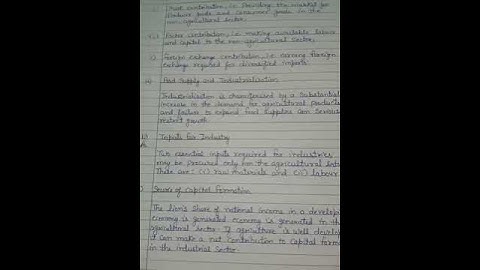 contribution, i.e. Providing the market for
Producer goods and consumer goods in the
non-agricultural sector.
Factor contribution, i.e. making available labour
and capital to the non agricultural sector,
Foreign exchange contribution, i.e. earning foreign
exchange required for diversified imports
Food Supply and Industrialisation
Industrialisation is characterised by a substantial
increase in the demand for agricultural products
and failure to expand food supplies can
restrict growth
Inputs for Industry
Two essential inputs required for industries
may be procured only from the agricultural
These are: (i) raw materials and (ii) labour
Source of Capital Formation
The lion's share of national income in a develop
economy is generated economy is generated in the
agricultural sector. If agriculture is well develo
it can make a net contribution to capital form
in the industrial sector.